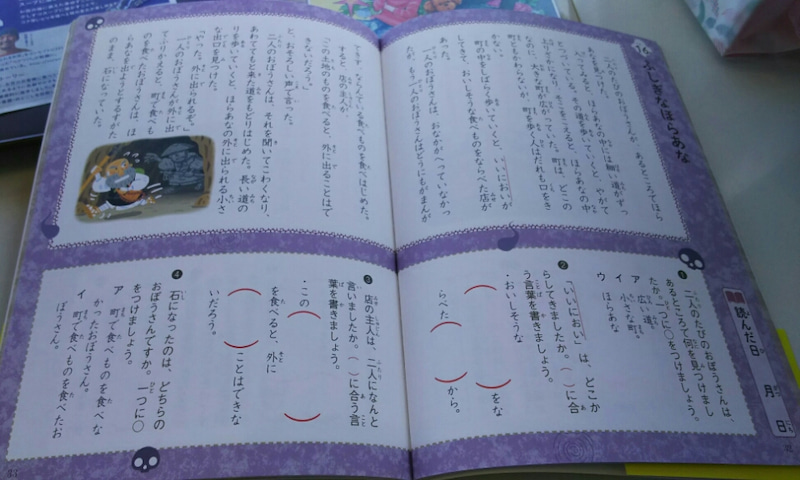 14 ふしぎなほらあな
二人のたびのおぼうさんが、あるところでほら
あなを見つけた。
入ってみると、ほらあなの中には細い道がずっ
とつづいている。その道を歩いていくと、やがて
になり、そこをこえると、ほらあなの中
なのに大きな町が広がっていた。町は、どこの
町ともかわらないが、町を歩く人はだれも口をき
かない。
町の中をしばらく歩いていくと、いいにおいが
してきて、おいしそうな食べものをならべた店が
あった。
一人のおぼうさんは、おなかがへっていなかっ
たが、もう一人のおぼうさんはどうにもがまんが
できず、ならんでいる食べものを食べはじめた。
すると、店の主人が、
「この土地のものを食べると、外に出ることはで
きないだろう。」
と、おそろしい声で言った。
二人のおぼうさんは、それを聞いてこわくなり、
あわててもと来た道をもどりはじめた。長い道の
りを歩いていくと、ほらあなの外に出られる小さ
な出口を見つけた。
「やった。外に出られるぞ。」
一人のおぼうさんが外に出
てふりかえると、町で食べも
のを食べたおぼうさんは、ほ
らあなを出ようとするすがた
のまま、石になっていた。
読んだ日 月 日
❶ 二人のたびのおぼうさんは、
あるところで何を見つけまし
たか。一つに○をつけましょう。
ア 広い道。
イ 小さな町。
ウ ほらあな
❷ 「いいにおい」は、どこか
らしてきましたか。（ ）に合
う言葉を書きましょう。
・おいしそうな
（ ）をな
らべた（ ）から。
❸ 店の主人は、二人になんと
言いましたか。（ ）に合う言
葉を書きましょう。
・この（ ）
を食べると、外に
（ ）ことはできな
いだろう。
❹ 石になったのは、どちらの
おぼうさんですか。一つに○
をつけましょう。
ア 町で食べものを食べな
かったおぼうさん。
イ 町で食べものを食べたお
ぼうさん。